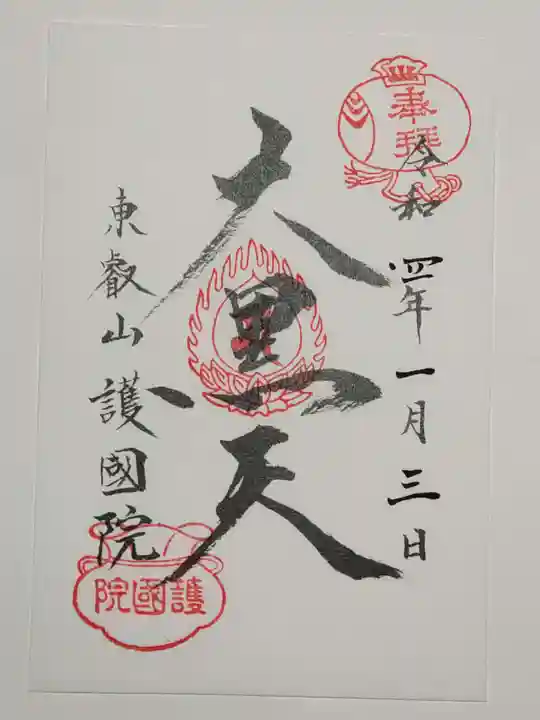 奉拝
令和四年一月三日
大黒天
東叡山護國院
護國院